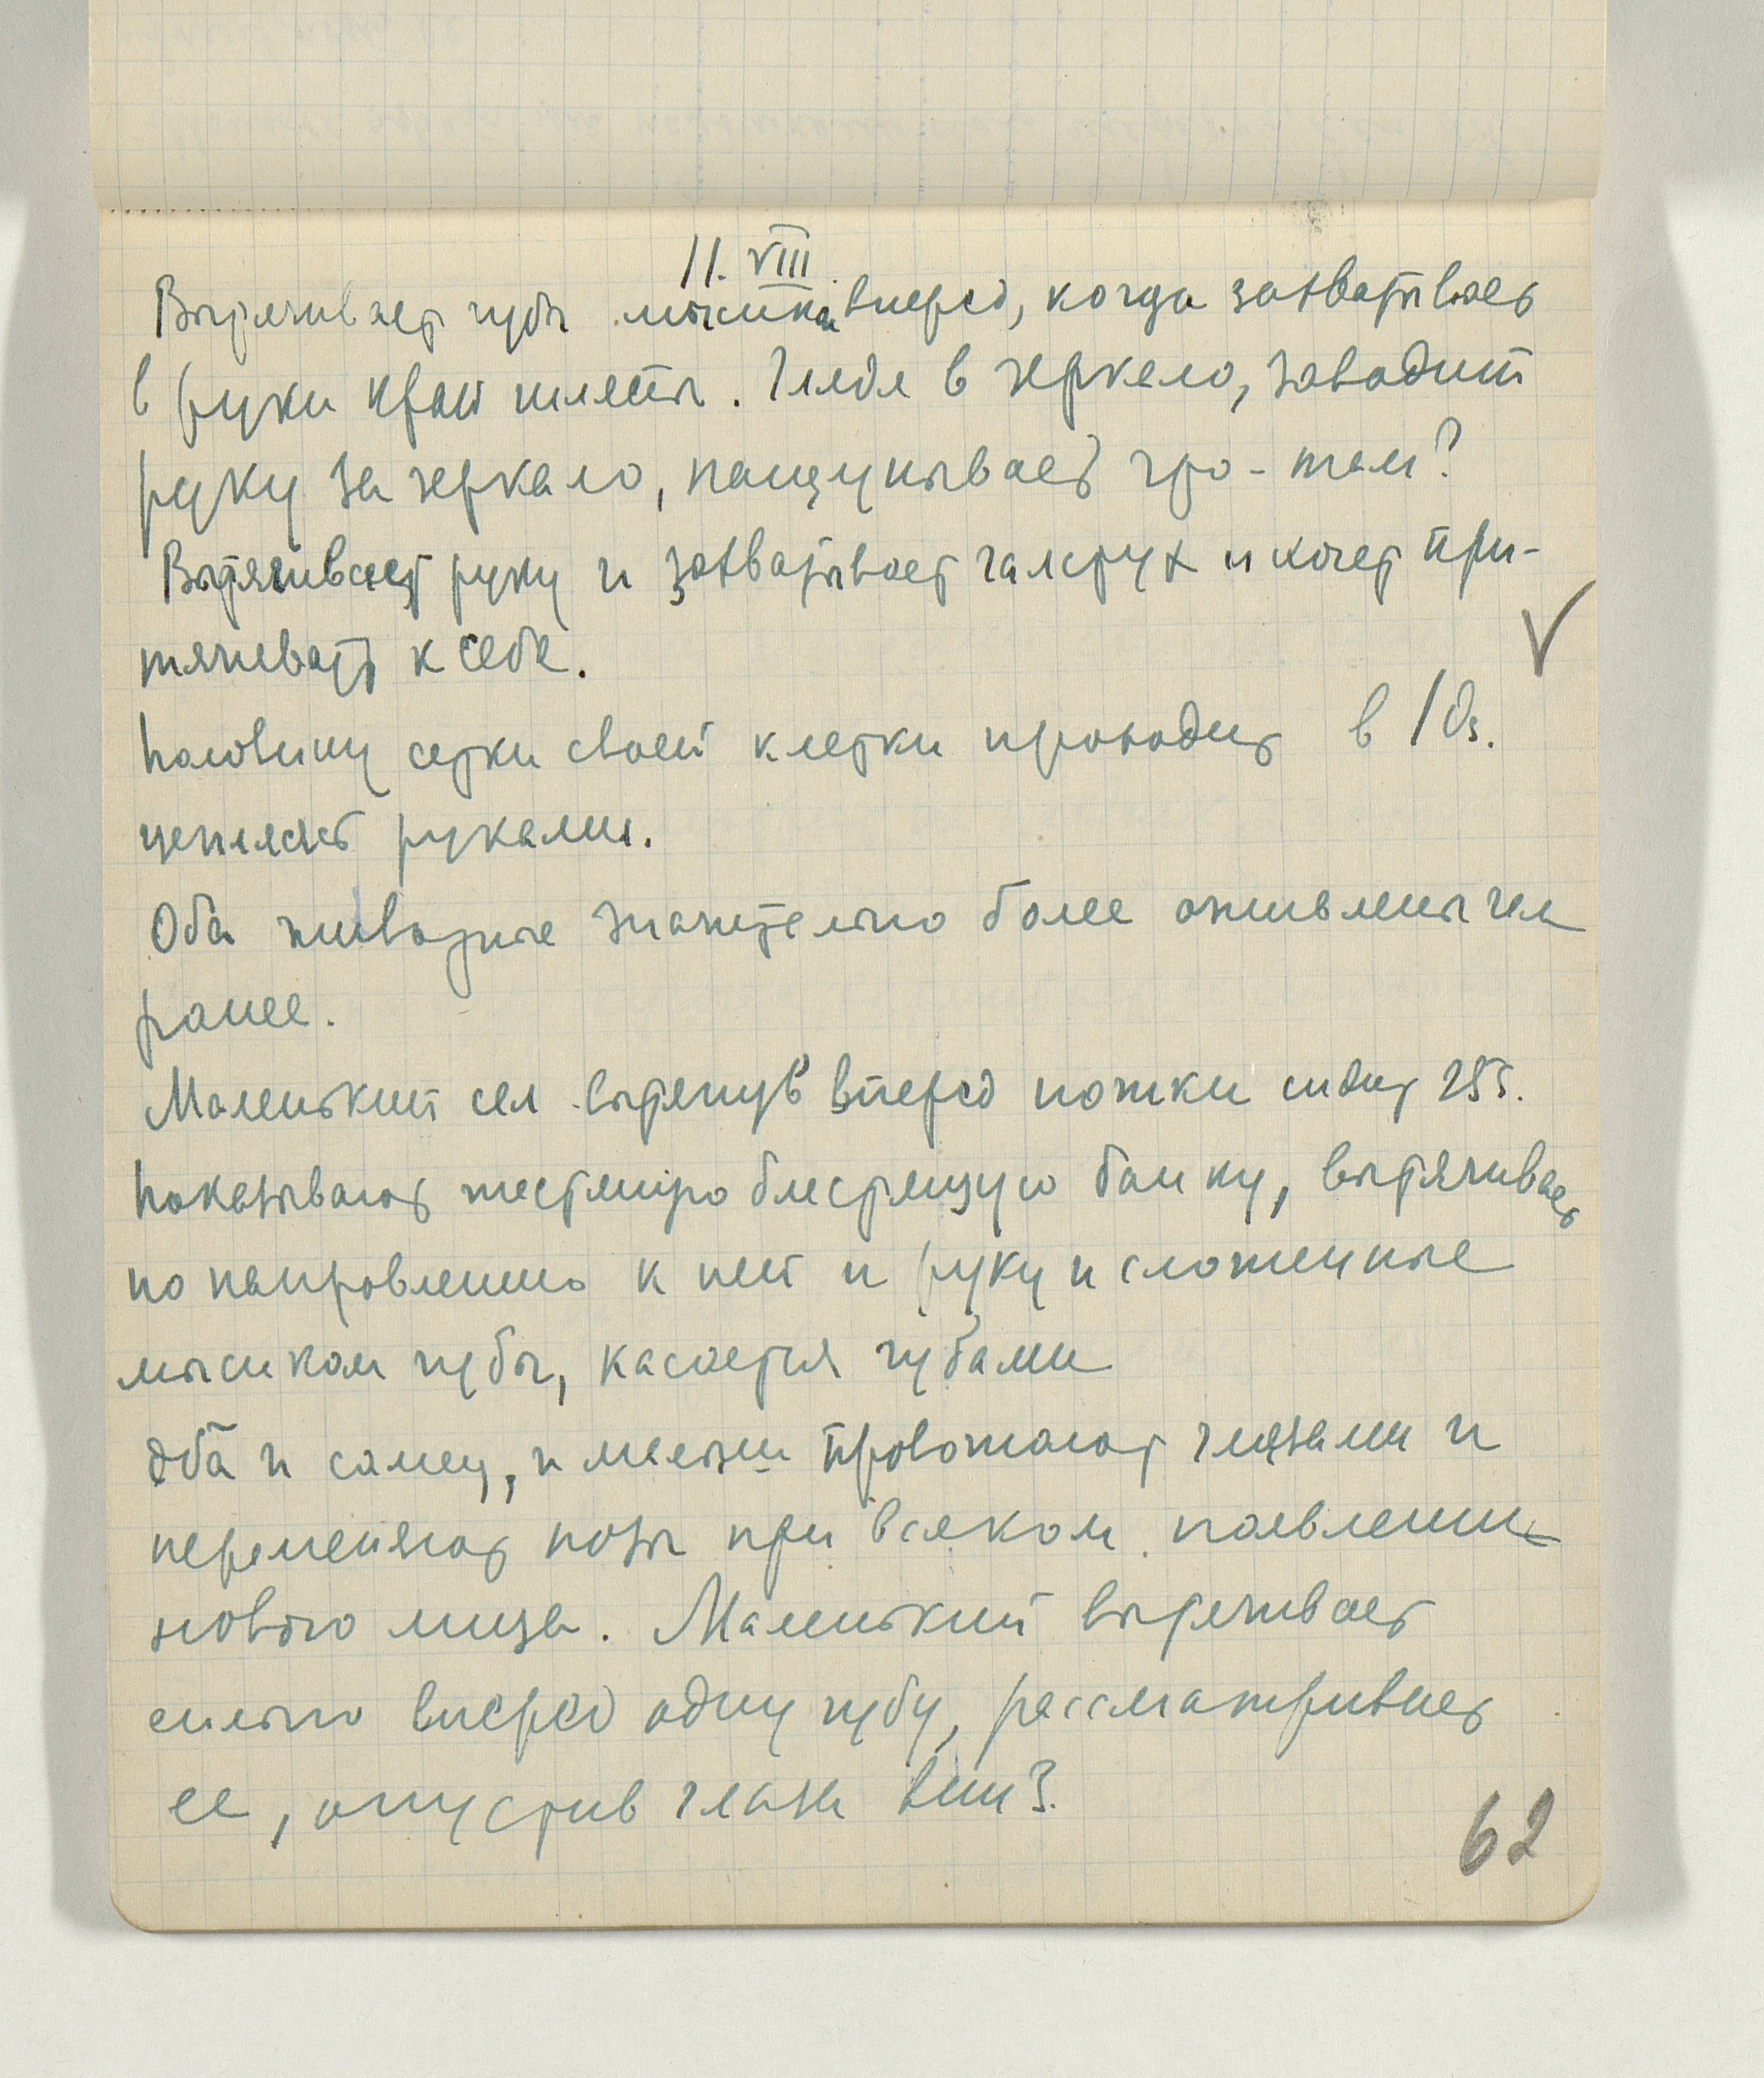 11. VIII
Вытягивает губы мысиком вперед, когда захватывает
в руки край шляпы. Глядя в зеркало, заводит
руку за зеркало, нащупывает что - там?
Вытягивает руку и захватывает галстук и хочет при-
тягивать к себе.
Половину сетки своей клетки проходит в 10s.
цепляясь руками.
Оба животные значительно более оживлены чем
ранее.
Маленький сел вытянув вперед ножки сидит 25s.
Показывают жестяную блестящую банку, вытягивает
по направлению к ней и руку и сложенные
мысиком губы, касается губами
Оба и самец, и провожают глазами и
переменяют позы при всяком появлении
нового лица. Маленький вытягивает
сильно вперед одну губу, рассматривает
ее, опустив глаза вниз.
62